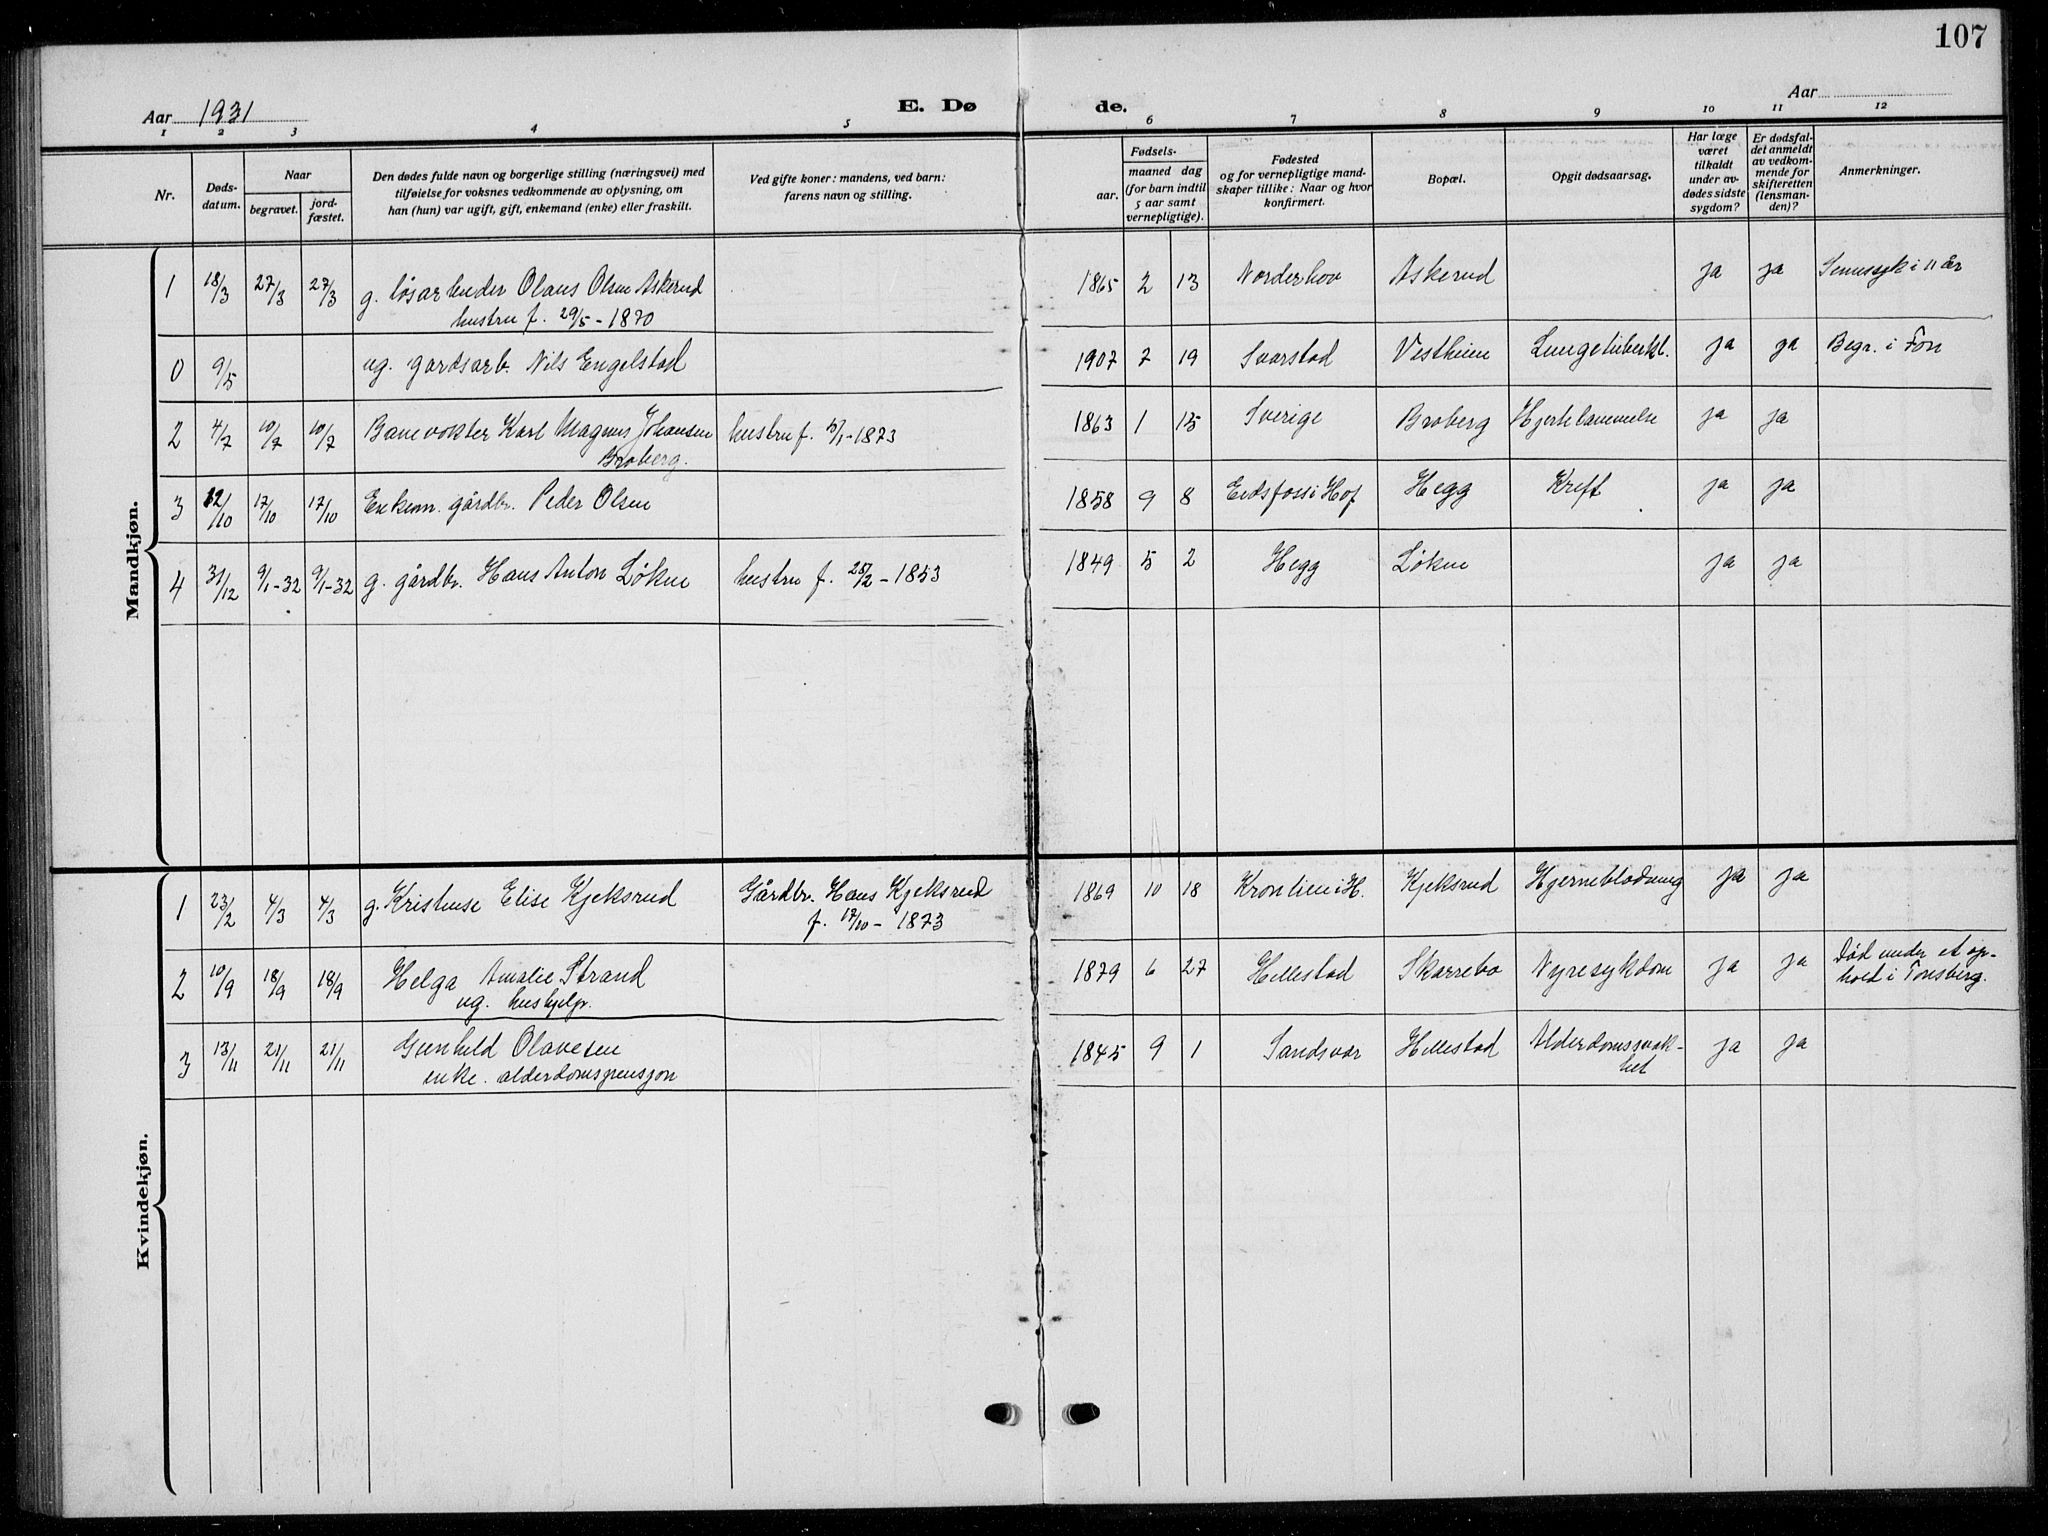 107
Aar 1931
E. Dø
de.
Aar
1 2 3 4 5 6 7 8 9 10 11 12
Nr.
Døds-
datum.
Naar
begravet.
jord-
fæstet.
Den dødes fulde navn og borgerlige stilling (næringsvei) med
tilføielse for voksnes vedkommende av oplysning, om
han (hun) var ugift, gift, enkemand (enke) eller fraskilt.
Ved gifte koner: mandens, ved barn:
farens navn og stilling.
Fødsels-
aar.
maaned dag
(for barn indtil
5 aar samt
vernepligtige).
Fødested
og for vernepligtige mand-
skaper tillike: Naar og hvor
konfirmert.
Bopæl.
Opgit dødsaarsag.
Har læge
været
tilkaldt
under av-
dødes sidste
sygdom?
Er dødsfal-
det anmeldt
av vedkom-
mende for
skifteretten
(lensman-
den)?
Anmerkninger.
Mandkjøn.
1 18/3 27/3 27/3 g. løsarbeider Olaus Olsen Askerud 1865 2 13 Norderhov Askerud ja ja Sinnssyk i 11 år
hustru f. 29/5 - 1870
0 9/5 ug. gardsarb. Nils Engelstad 1907 7 19 Svarstad Vestheim Lungetuberkl. ja ja Begr. i Fon
2 4/7 10/7 10/7 Banevokter Karl Magnus Johansen hustru f. 5/1 - 1873 1863 1 15 Sverige Broberg Hjertelammelse ja ja
Broberg.
3 12/10 17/10 17/10 Enkem. gårdbr. Peder Olsen 1858 9 8 Eidsfoss i Hof Hegg Kreft ja ja
4 31/12 9/1-32 9/1-32 g. gårdbr. Hans Anton Løkne hustru f. 28/2 - 1853 1849 5 2 Hegg Løkne ja ja
Kvindekjøn.
1 23/2 4/3 4/3 g. Kristine Elise Kjeksrud Gårdbr. Hans Kjeksrud 1869 10 18 Kronlien i H. Kjeksrud Hjerneblødning ja ja
f. 17/10 - 1873
2 10/9 18/9 18/9 Helga Amalie Strand 1879 6 27 Hillestad Skarrebo Nyresykdom ja ja Død under et op-
ug. hushjelp. hold i Tønsberg.
3 13/11 21/11 21/11 Gunhild Olavesen 1845 9 1 Sandsvær Hillestad Alderdomssvak- ja ja
enke. alderdomspensjon het